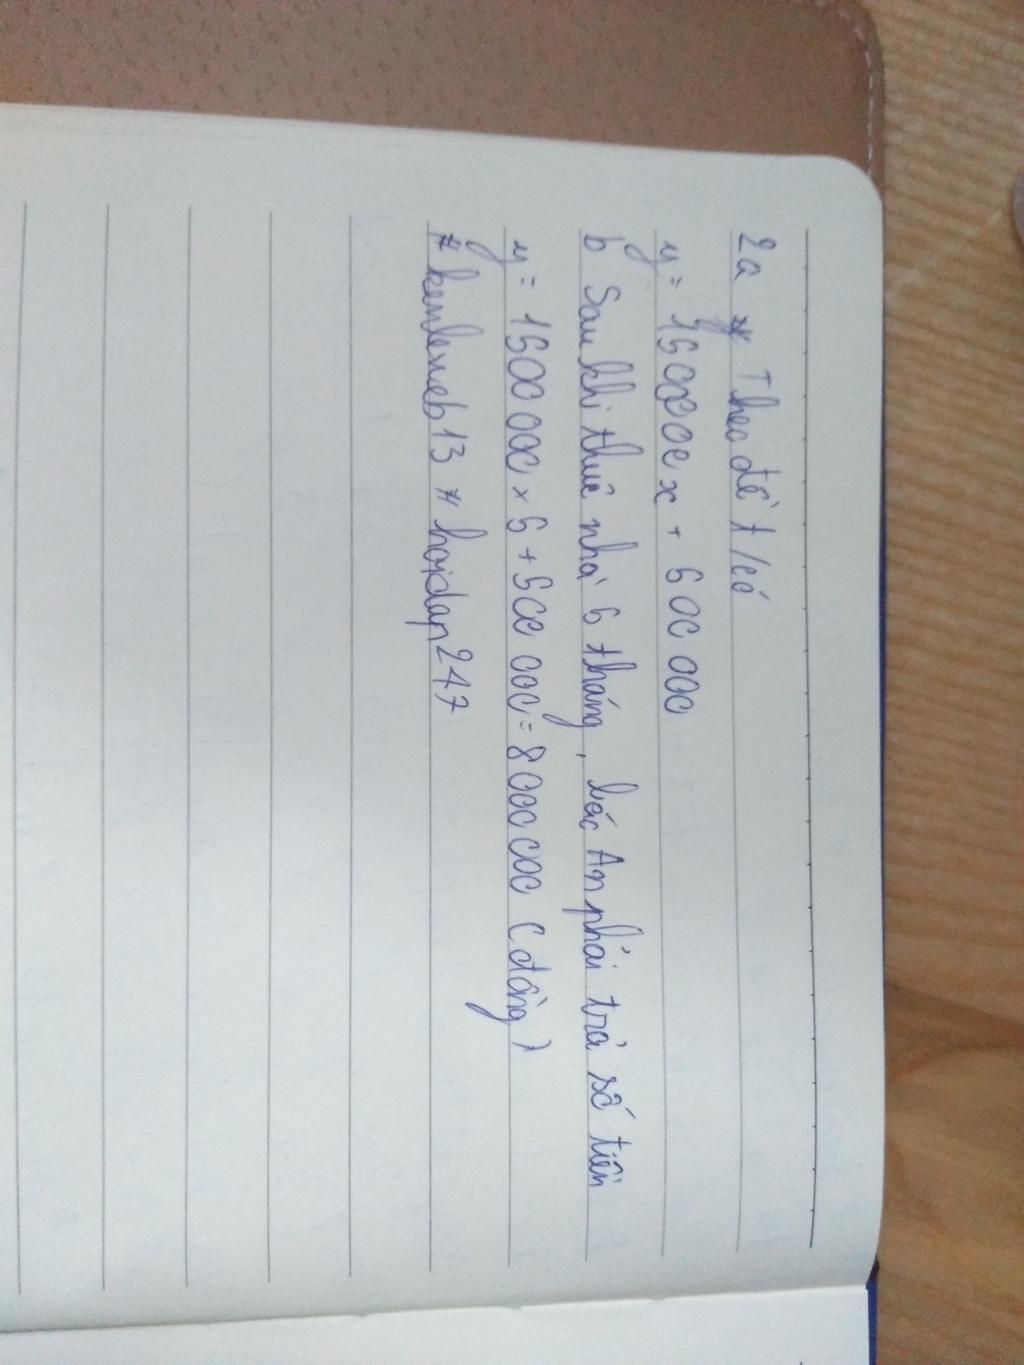 2a * Theo đề t/có
y = 1500000 x + 500 000
b Sau khi thuê nhà 5 tháng, bác An phải trả số tiền
y = 1500 000 x 5 + 500 000 = 8 000 000 (đồng)
# kenlemeb13 # hoidap247